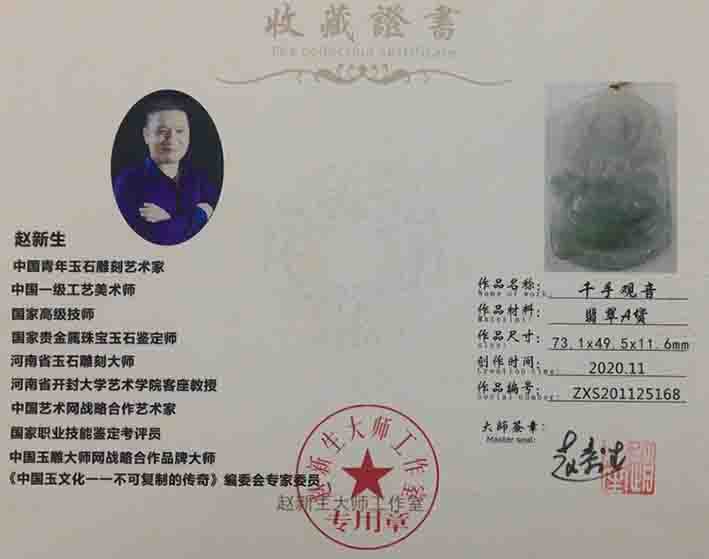 收藏證書
The collection certificate
赵新生
中国青年玉石雕刻艺术家
中国一级工艺美术师
国家高级技师
国家贵金属珠宝玉石鉴定师
河南省玉石雕刻大师
河南省开封大学艺术学院客座教授
中国艺术网战略合作艺术家
国家职业技能鉴定考评员
中国玉雕大师网战略合作品牌大师
《中国玉文化一一不可复制的传奇》编委会专家委员
作品名称: 千手观音
Name of work:
作品材料: 翡翠A货
Material:
作品尺寸: 73.1x49.5x11.6mm
Size:
创作时间: 2020.11
Creation time:
作品编号: ZXS201125168
Serial number:
大师签章:
Master seal:
赵新生大师工作室
专用章
赵新生大师工作室